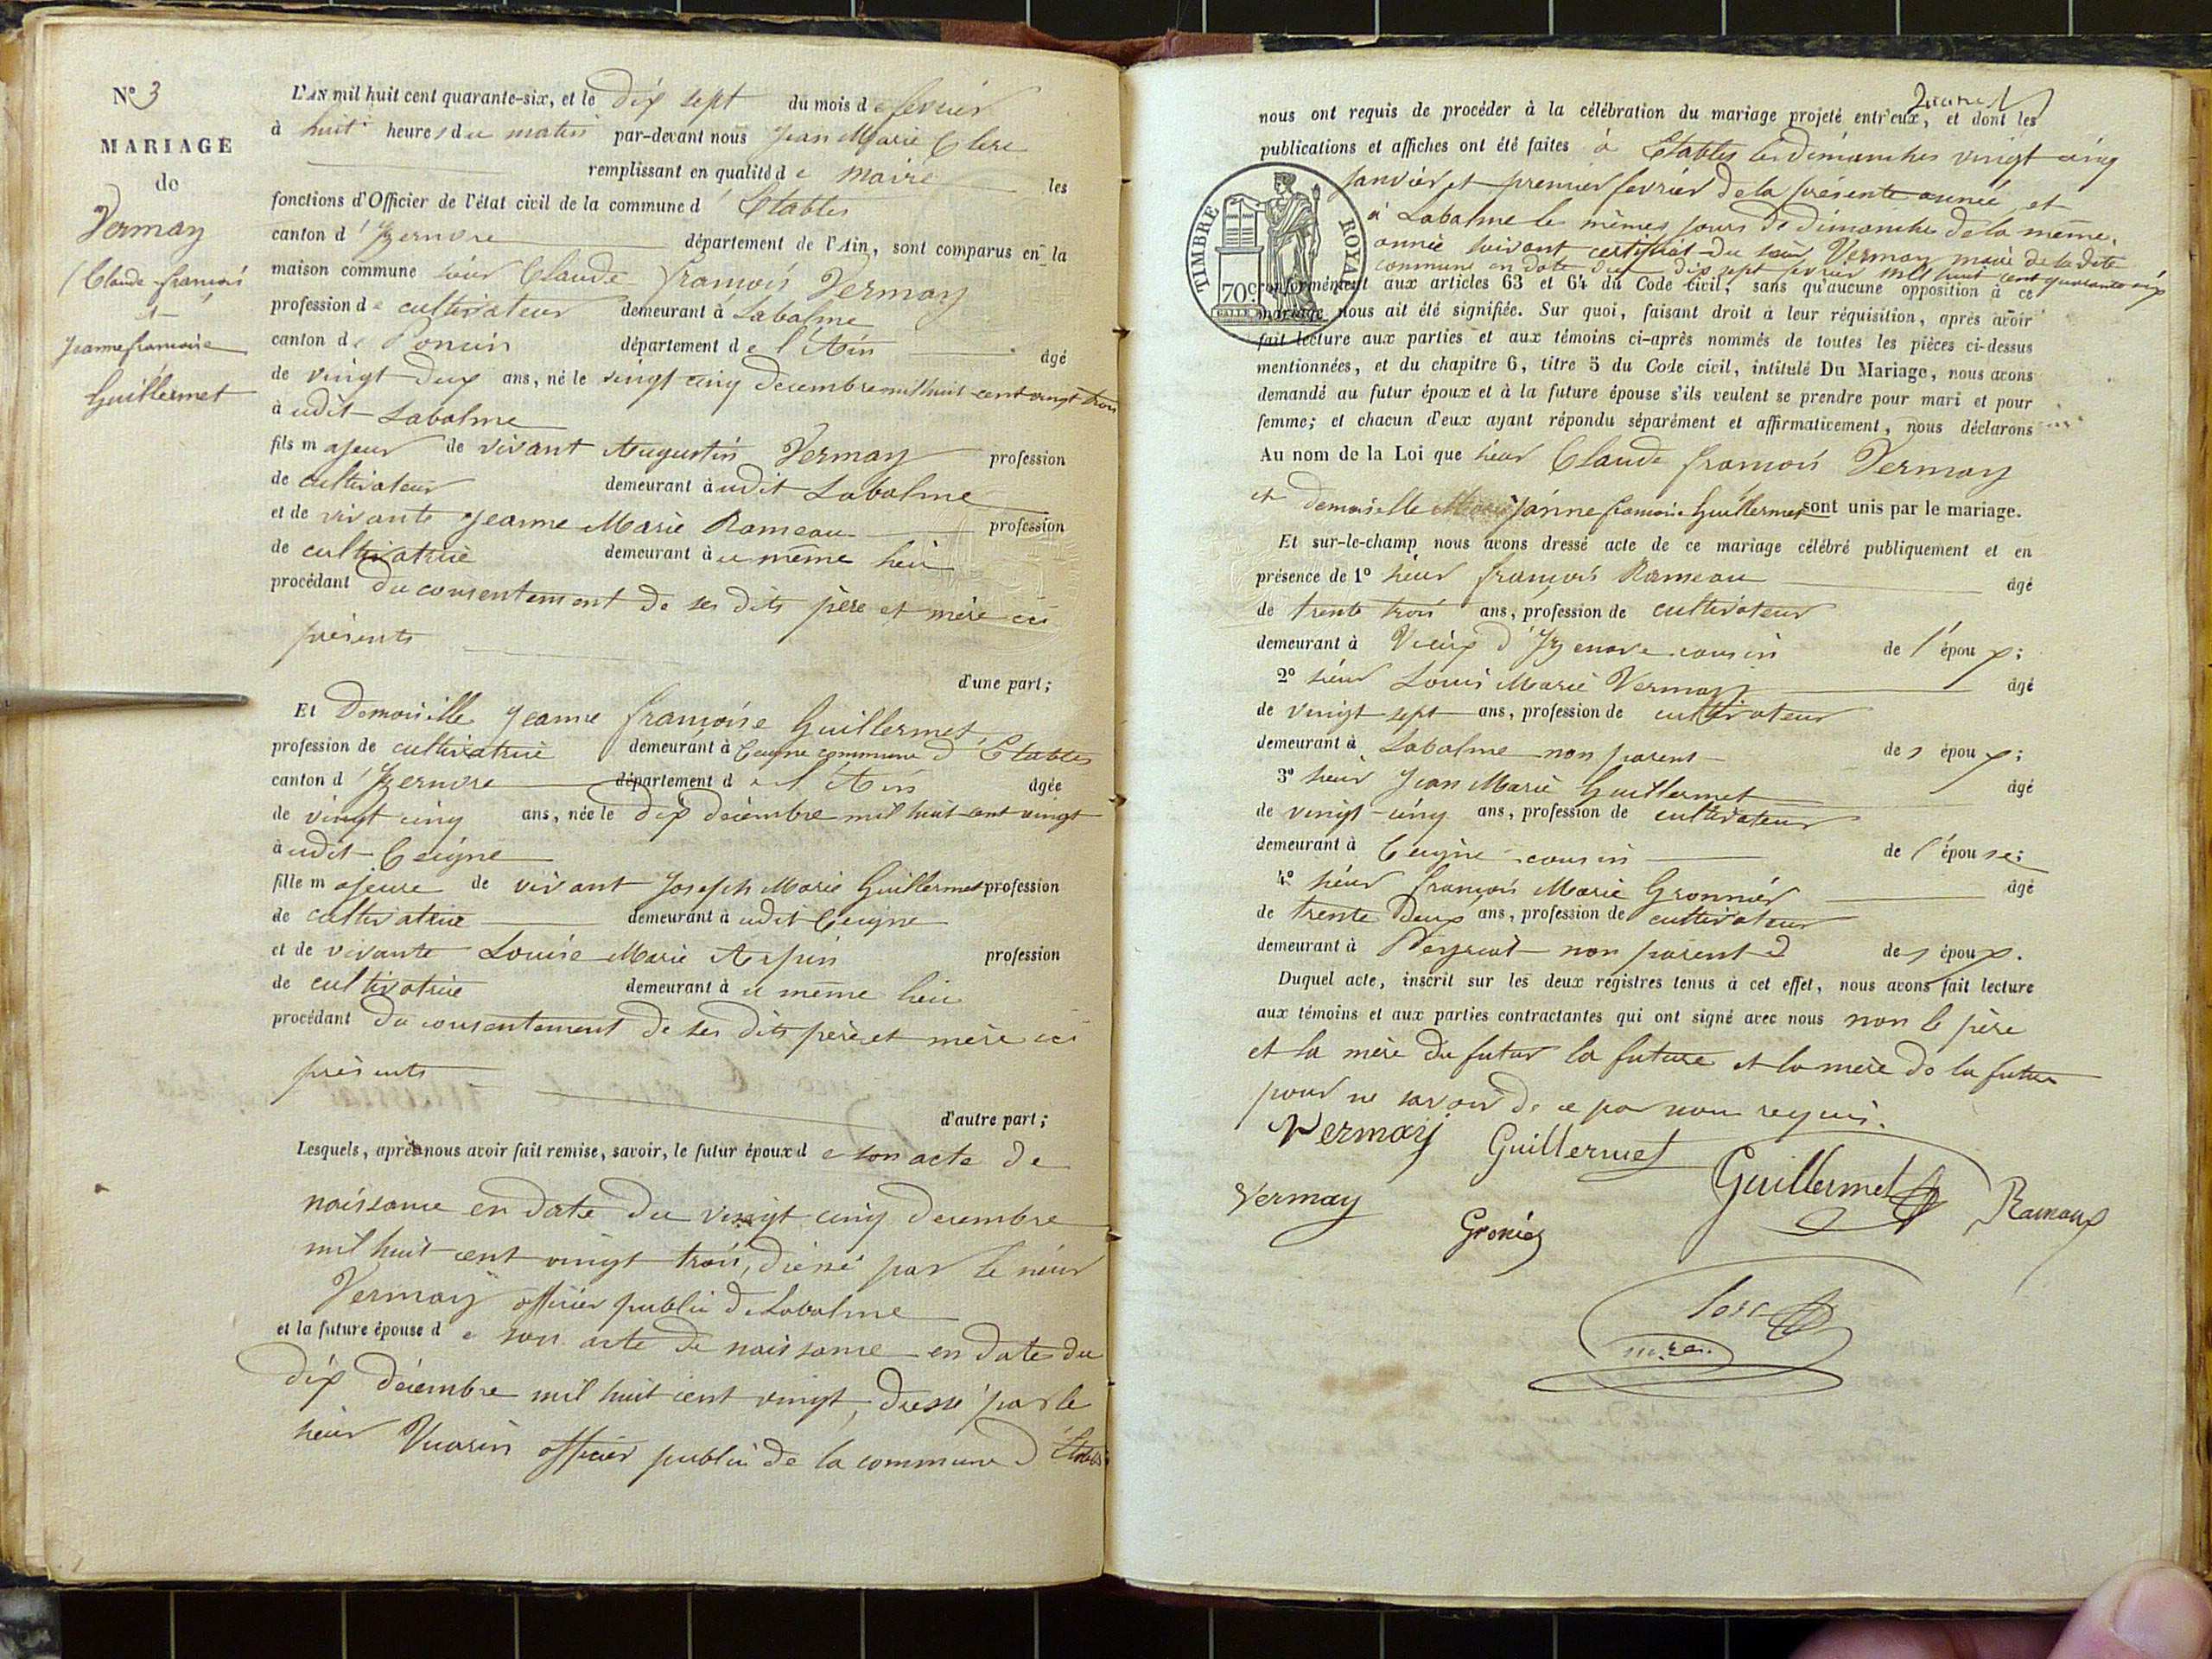 N° 3
MARIAGE
de
Vermay
Claude françois
et
Jeanne françoise
Guillermet
L'AN mil huit cent quarante-six, et le dix sept du mois de fevrier
à huit heures du matin par-devant nous Jean Marie Clerc
remplissant en qualité de maire les
fonctions d'Officier de l'état civil de la commune d'Etables
canton d'Izernore département de l'Ain, sont comparus en la
maison commune sieur Claude françois Vermay
profession de cultivateur demeurant à Labalme
canton de Poncin département de l'Ain âgé
de vingt deux ans, né le vingt cinq decembre mil huit cent vingt trois
à udit Labalme
fils majeur de vivant Augustin Vermay profession
de cultivateur demeurant à udit Labalme
et de vivante Jeanne Marie Rameau profession
de cultivatrice demeurant à u même lieu
procédant du consentement de ses dits père et mère ici
présents
d'une part;
Et Demoiselle Jeanne françoise Guillermet
profession de cultivatrice demeurant à Ceigne commune d'Etables
canton d'Izernore département de l'Ain âgée
de vingt cinq ans, née le dix décembre mil huit cent vingt
à udit Ceigne
fille majeure de vivant Joseph Marie Guillermet profession
de cultivatrice demeurant à udit Ceigne
et de vivante Louise Marie Arpin profession
de cultivatrice demeurant à u même lieu
procédant du consentement de ses dits père et mère ici
présents
d'autre part;
Lesquels, après nous avoir fait remise, savoir, le futur époux de son acte de
naissance en date du vingt cinq decembre
mil huit cent vingt trois, dressé par le sieur
Vermay officier public de Labalme
et la future épouse de son acte de naissance en date du
dix décembre mil huit cent vingt, dressé par le
sieur Vuarin officier public de la commune d'Etables
nous ont requis de procéder à la célébration du mariage projeté entr'eux, et dont les
publications et affiches ont été faites à Etables les dimanches vingt cinq
janvier et premier fevrier de la présente année et
à Labalme le mêmes jours de dimanche de la même
année suivant certificat du sieur Vermay maire de la dite
commune en date du dix sept fevrier mil huit cent quarante six
TIMBRE ROYAL
70c
conformément aux articles 63 et 64 du Code civil, sans qu'aucune opposition à ce
mariage nous ait été signifiée. Sur quoi, faisant droit à leur réquisition, après avoir
fait lecture aux parties et aux témoins ci-après nommés de toutes les pièces ci-dessus
mentionnées, et du chapitre 6, titre 5 du Code civil, intitulé Du Mariage, nous avons
demandé au futur époux et à la future épouse s'ils veulent se prendre pour mari et pour
femme; et chacun d'eux ayant répondu séparément et affirmativement, nous déclarons
Au nom de la Loi que sieur Claude françois Vermay
et demoiselle Jeanne françoise Guillermet sont unis par le mariage.
Et sur-le-champ nous avons dressé acte de ce mariage célébré publiquement et en
présence de 1° sieur françois Rameau âgé
de trente trois ans, profession de cultivateur
demeurant à Vieux d'Izenave cousin de l'époux;
2° sieur Louis Marie Vermay âgé
de vingt sept ans, profession de cultivateur
demeurant à Labalme non parent des époux;
3° sieur Jean Marie Guillermet âgé
de vingt-cinq ans, profession de cultivateur
demeurant à Ceigne cousin de l'épouse;
4° sieur françois Marie Gronnier âgé
de trente deux ans, profession de cultivateur
demeurant à Peyriat non parent des époux.
Duquel acte, inscrit sur les deux registres tenus à cet effet, nous avons fait lecture
aux témoins et aux parties contractantes qui ont signé avec nous non le père
et la mère du futur la future et la mère de la future
pour ne savoir de ce par nous requis.
Vermay Guillermet Guillermet
Vermay Gronier Rameaux